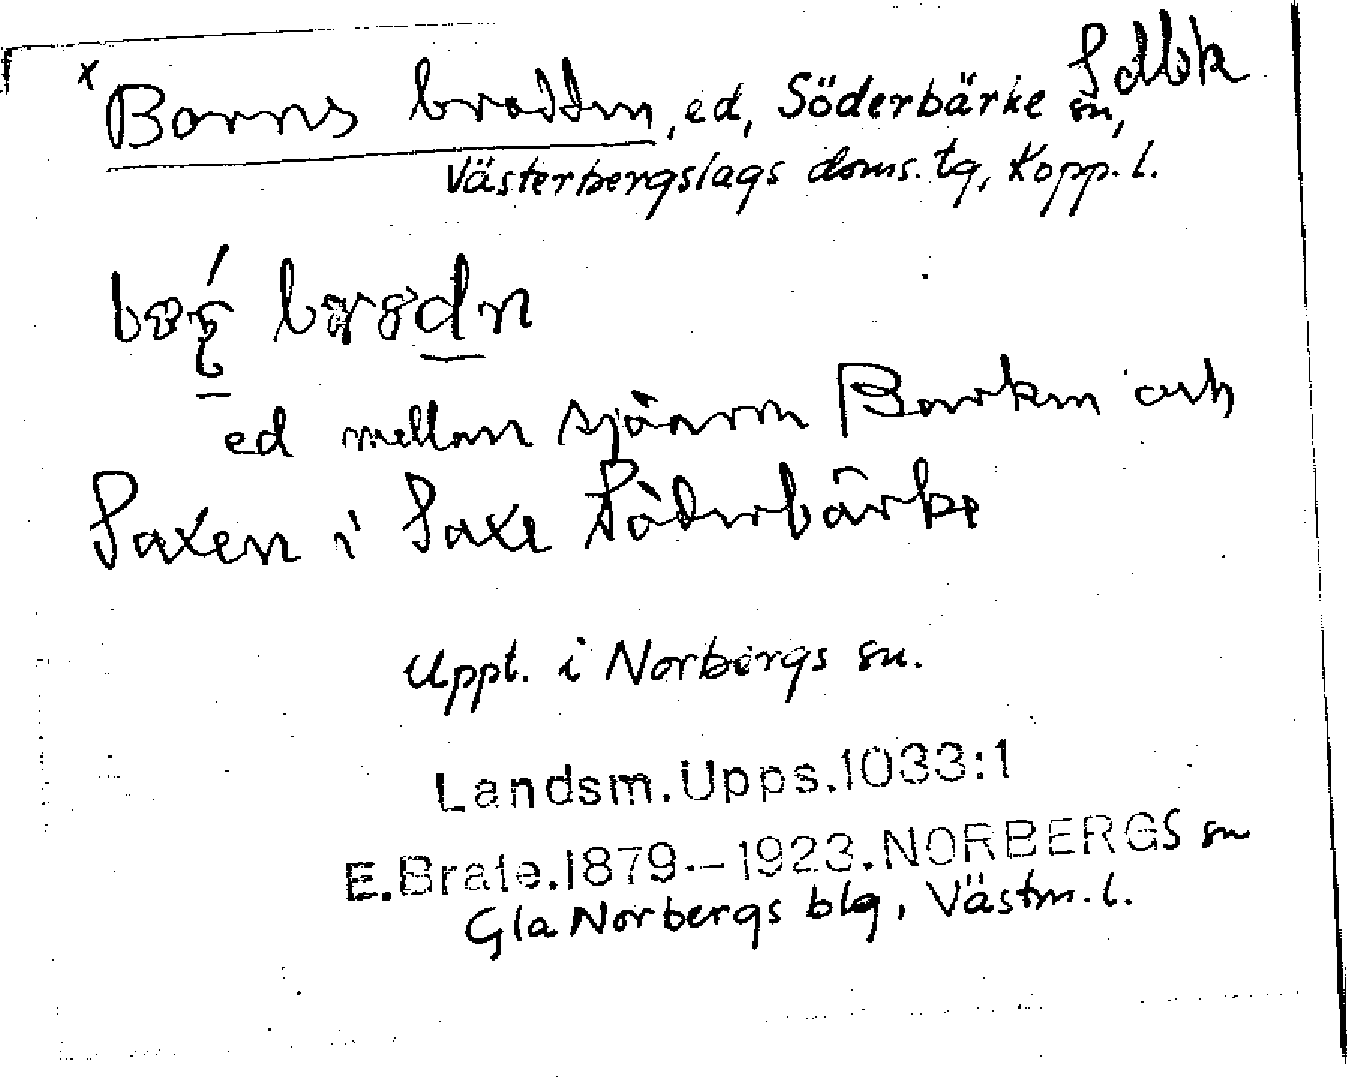 x Borns brodden, ed, Söderbärke sn, Sdbk
Västerbergslags doms. tg, Kopp. l.
ed mellan sjöarna Barken och
Saxen i Saxe Söderbärke
Uppt. i Norbergs sn.
Landsm.Upps.1033:1
E.Brate.1879.–1923.NORBERGS sn
Gla Norbergs blg, Västm. l.